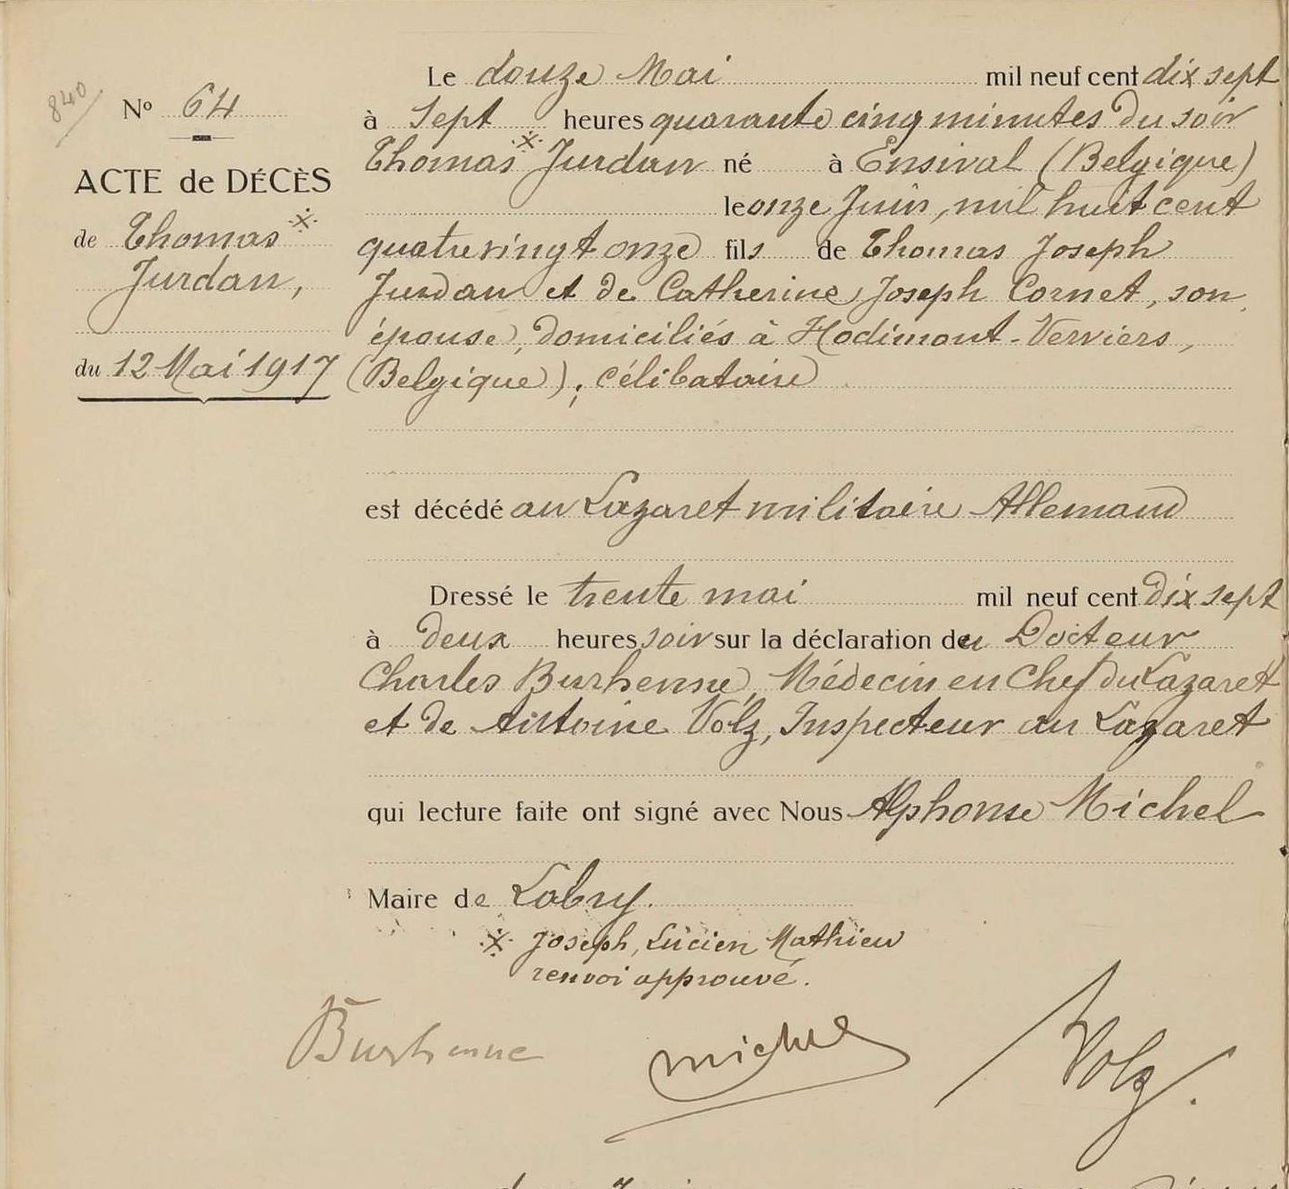 840
Nº 64
ACTE de DÉCÈS
de Thomas ※
Jurdan,
du 12 Mai 1917
Le douze Mai mil neuf cent dix sept
à Sept heures quarante cinq minutes du soir
Thomas ※ Jurdan né à Ensival (Belgique)
le onze Juin, mil huit cent
quatrevingt onze fils de Thomas Joseph
Jurdan et de Catherine, Joseph Cornet, son
épouse, domiciliés à Hodimont-Verviers,
(Belgique); célibataire
est décédé au Lazaret militaire Allemand
Dressé le trente mai mil neuf cent dix sept
à deux heures soir sur la déclaration du Docteur
Charles Burhenne, Médecin en Chef du Lazaret
et de Antoine Volz, Inspecteur au Lazaret
qui lecture faite ont signé avec Nous Alphonse Michel
Maire de Labry.
※ Joseph, Lucien Mathieu
renvoi approuvé.
Burhenne Michel Volz.